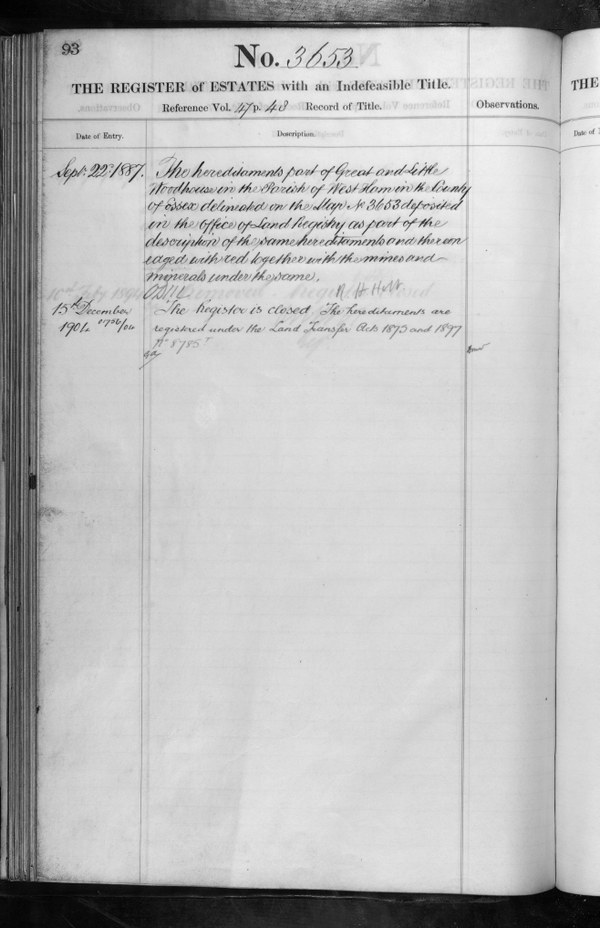 93
No. 3653
THE REGISTER of ESTATES with an Indefeasible Title.
Reference Vol. 47 p. 48 Record of Title.
Observations.
Date of Entry.
Description.
Sept. 22nd 1887.
The hereditaments part of Great and Little
Woodhouse in the Parish of West Ham in the County
of Essex delineated on the Map No 3653 deposited
in the Office of Land Registry as part of the
description of the same hereditaments and thereon
edged with red together with the mines and
minerals under the same.
R H Holt
15th December
1904
The Register is closed The hereditaments are
registered under the Land Transfer Acts 1875 and 1897
No 8785
THE
Date of